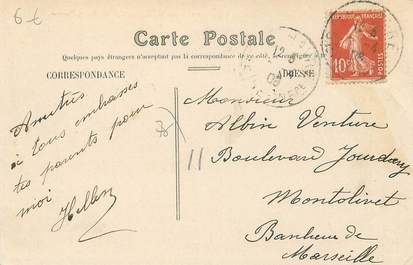 6 €
Carte Postale
Quelques pays étrangers n'acceptant pas la correspondance de ce côté, se renseigner
CORRESPONDANCE
ADRESSE
REPUBLIQUE FRANÇAISE
10c
POSTES
Amitiés
à tous embrasses
tes parents pour
moi
Monsieur
Albin Venture
11 Boulevard Jourdan
Montolivet
Banlieue de
Marseille